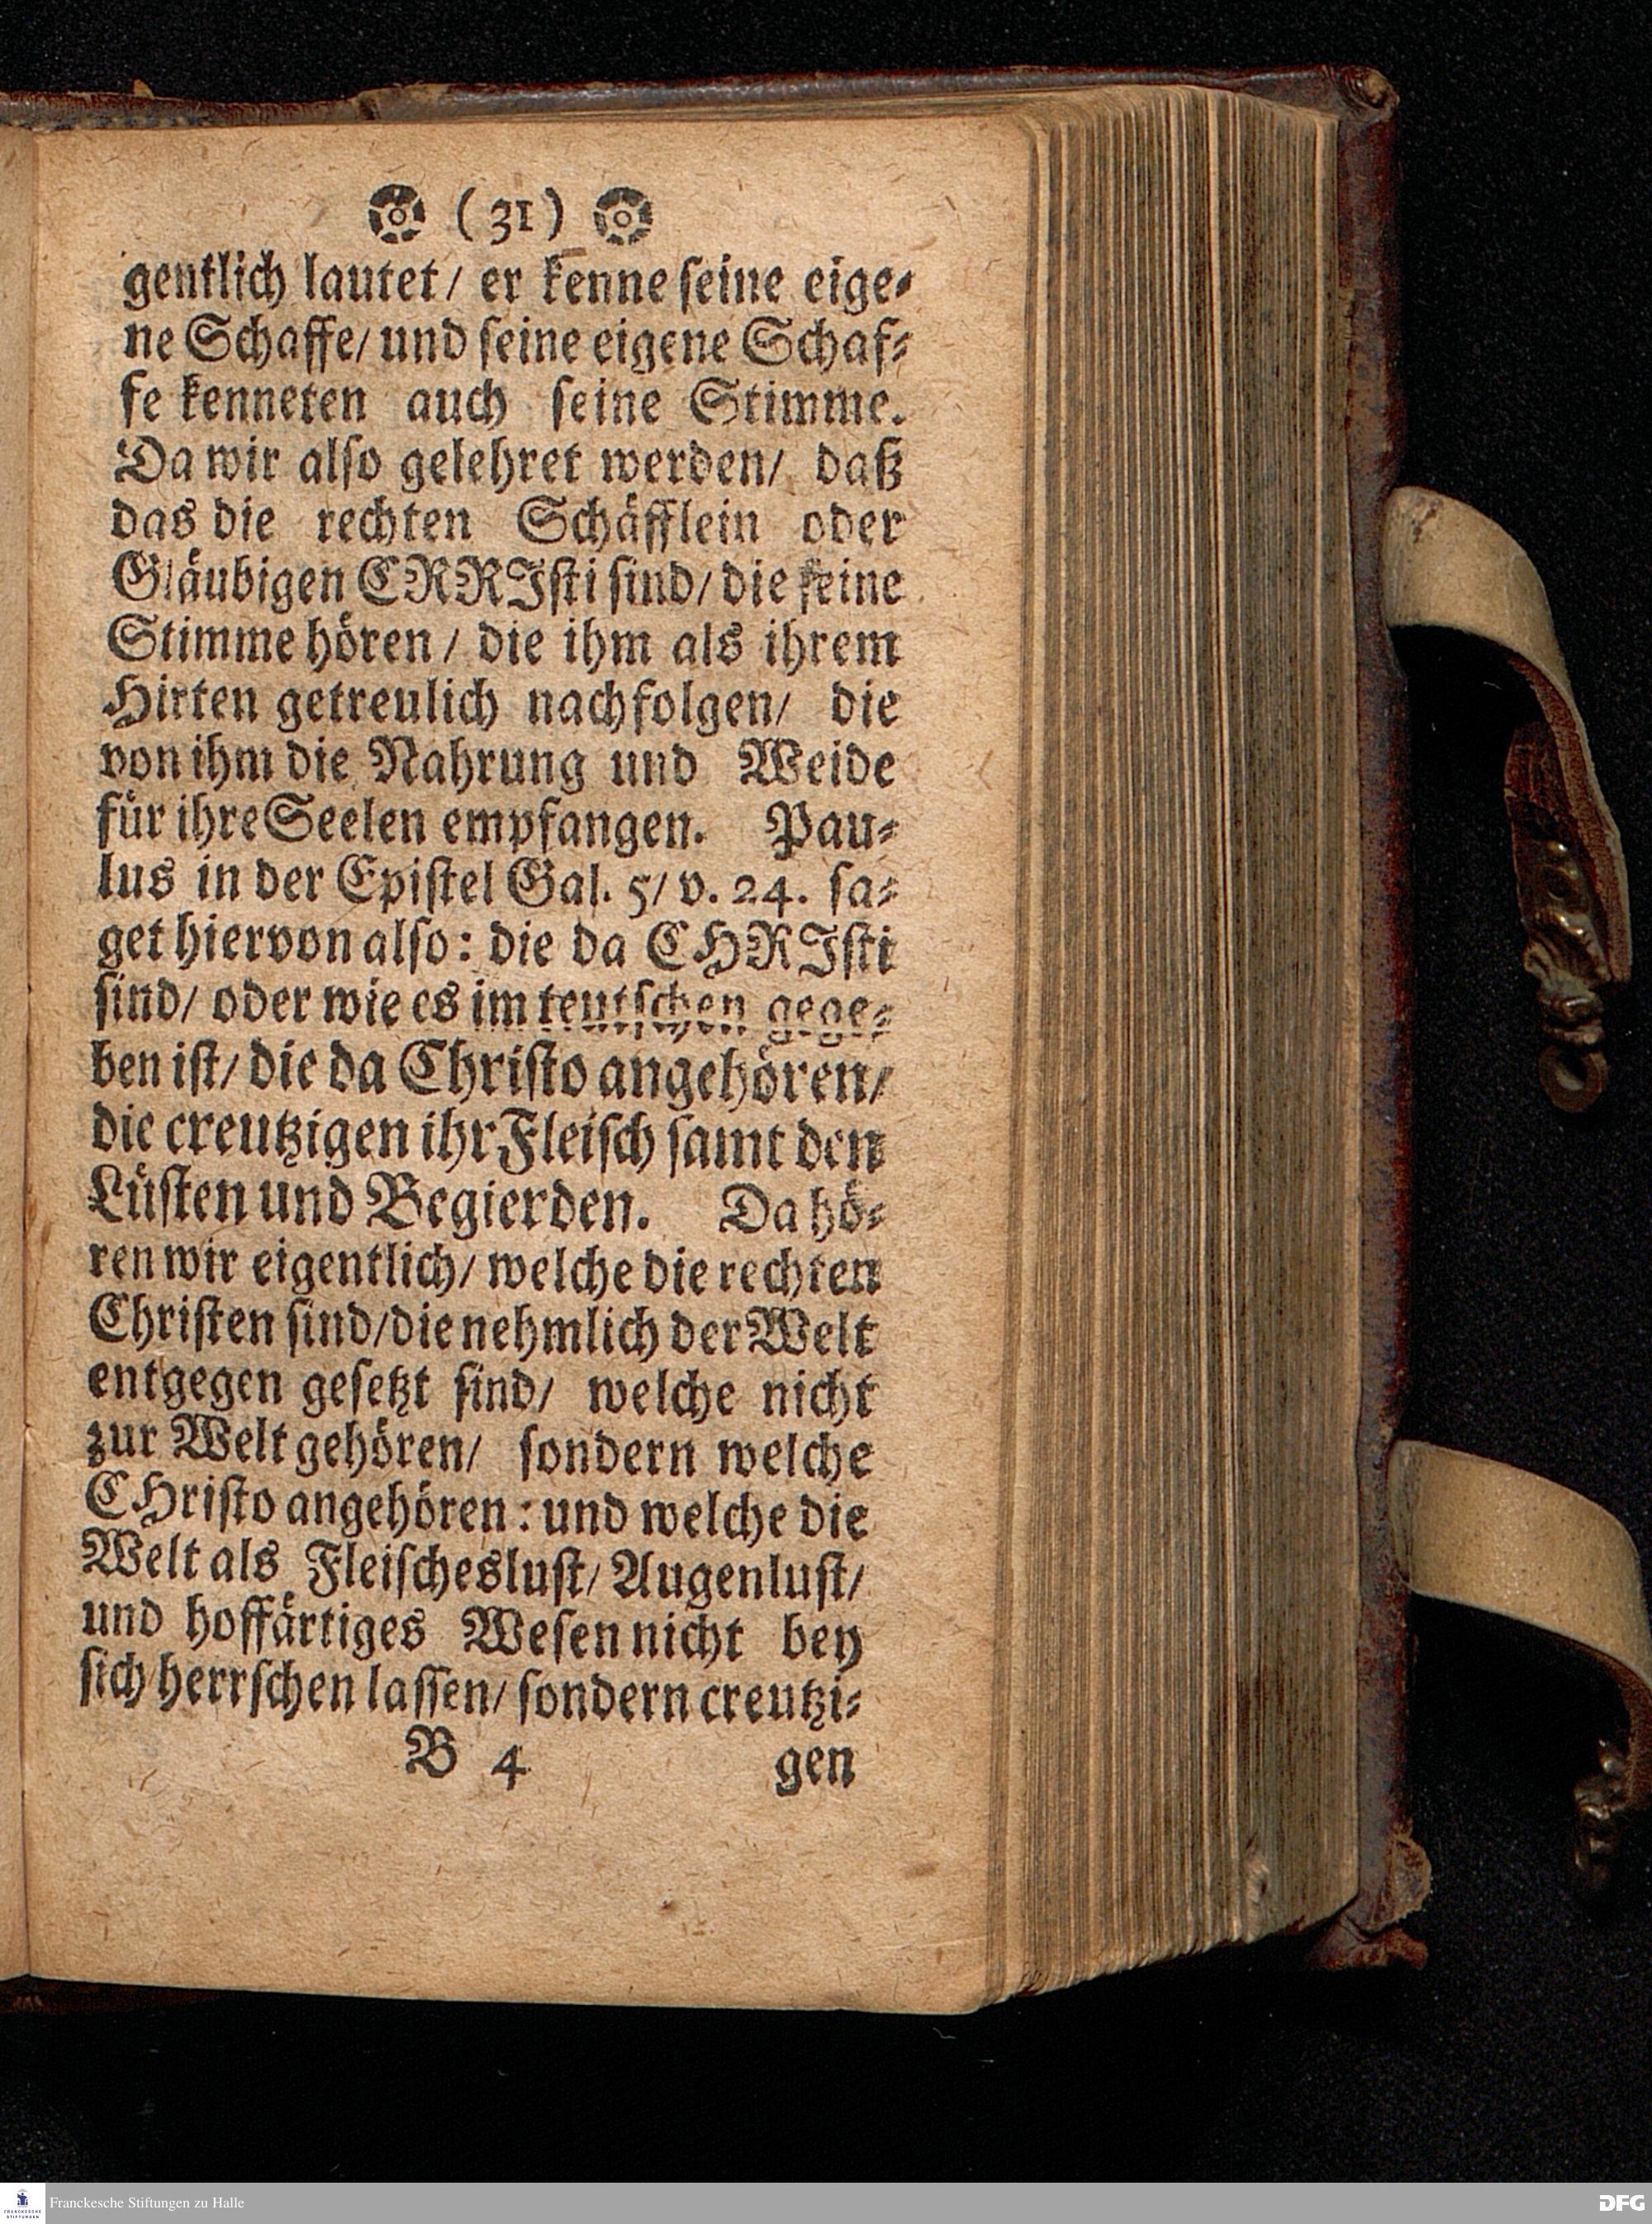 (31)
gentlich lautet/ er kenne ſeine eige⸗
ne Schaffe/ und ſeine eigene Schaf⸗
fe kenneten auch ſeine Stimme.
Da wir alſo gelehret werden/ daß
das die rechten Schäfflein oder
Gläubigen CRRIſti ſind/ die ſeine
Stimme hören/ die ihm als ihrem
Hirten getreulich nachfolgen/ die
von ihm die Nahrung und Weide
für ihre Seelen empfangen. Pau⸗
lus in der Epiſtel Gal. 5/ v. 24. ſa⸗
get hiervon alſo: die da CHRIſti
ſind/ oder wie es im teutſchen gege⸗
ben iſt/ die da Chriſto angehören/
die creutzigen ihr Fleiſch ſamt den
Lüſten und Begierden. Da hö⸗
ren wir eigentlich/ welche die rechten
Chriſten ſind/die nehmlich der Welt
entgegen geſetzt ſind/ welche nicht
zur Welt gehören/ ſondern welche
CHriſto angehören: und welche die
Welt als Fleiſchesluſt/ Augenluſt/
und hoffärtiges Weſen nicht bey
ſich herrſchen laſſen/ ſondern creutzi⸗
B 4 gen
Franckesche Stiftungen zu Halle
DFG